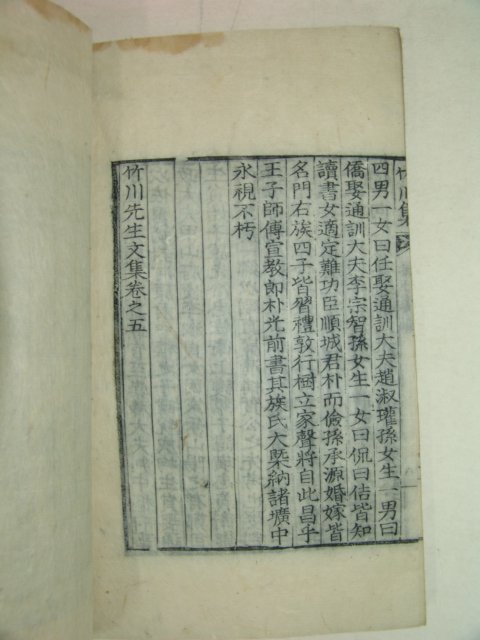 竹川集
四男一女曰任娶通訓大夫趙淑瓘孫女生一男曰
僑娶通訓大夫李宗智孫女生一女曰侃曰佶皆知
讀書女適定難功臣順城君朴而儉孫承源婚嫁皆
名門右族四子皆習禮敦行樹立家聲將自此昌乎
王子師傅宣教郎朴光前書其族氏大槩納諸壙中
永視不朽
竹川先生文集卷之五